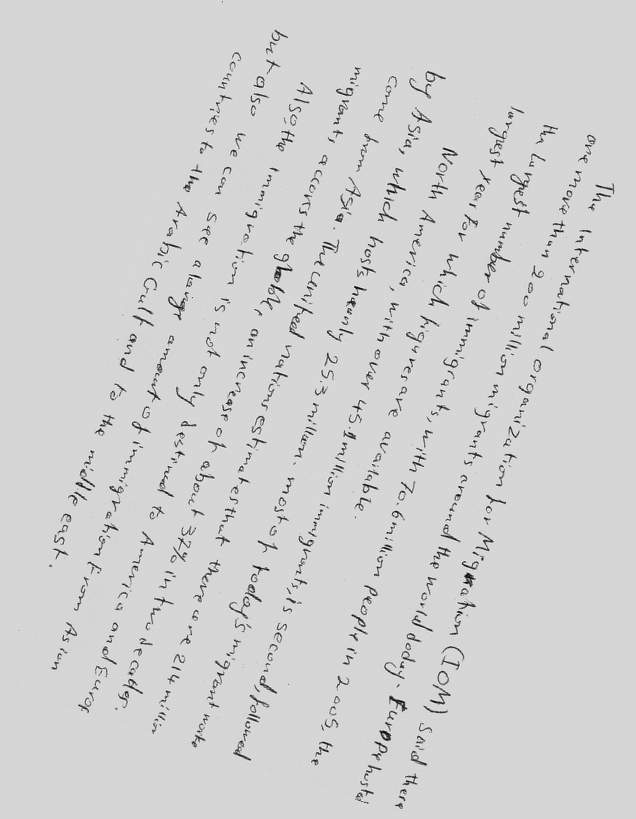 The International organization for Migration (IOM) said there
are more than 200 million migrants around the world today. Europe hosted
the largest number of immigrants, with 70.6 million people in 2005, the
largest year for which figures are available.
North America, with over 45.1 million immigrants, is second, followed
by Asia, which hosts nearly 25.3 million. most of today's migrant work
come from Asia. The united nations estimates that there are 214 million
migrants accross the globle, an increase of about 37% in two decades.
Also, the immigration is not only destined to America and Europ
but also we can see a large amount of immigration from Asian
countries to the Arabic Gulf and to the middle east.